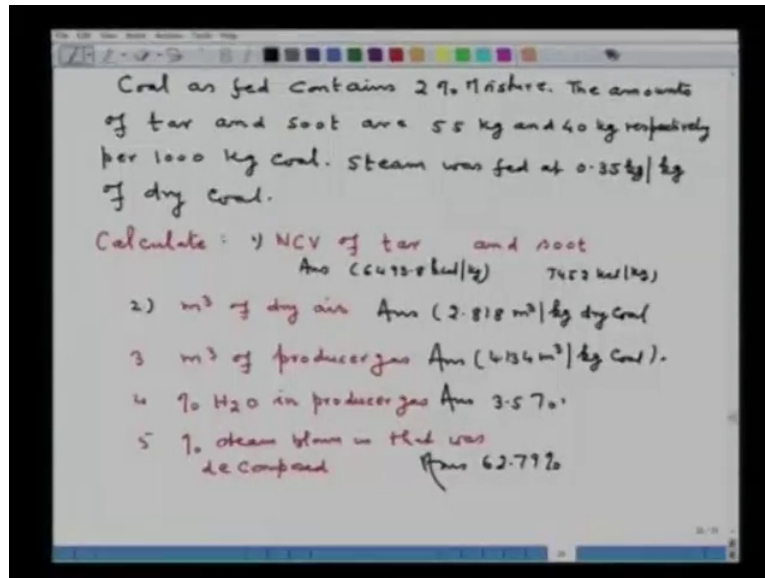 Coal as fed contains 2 % Moisture. The amounts
of tar and soot are 55 kg and 40 kg respectively
per 1000 kg coal. Steam was fed at 0.35 kg/kg
of dry coal.
Calculate : 1) NCV of tar and soot
Ans (6493.8 kcal/kg) 7452 kcal/kg)
2) m³ of dry air Ans (2.818 m³/kg dry coal
3 m³ of producer gas Ans (4.134 m³/kg coal).
4 % H2O in producer gas Ans 3.5 %.
5 % steam blown in that was
decomposed Ans 62.79%